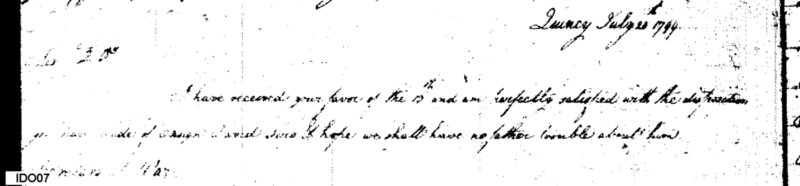 Quincy July 20th 1799.
I have received your favor of the 13th and am perfectly satisfied with the disposition
you have made of Ensign David I hope we shall have no father trouble about him
of War
IDO07